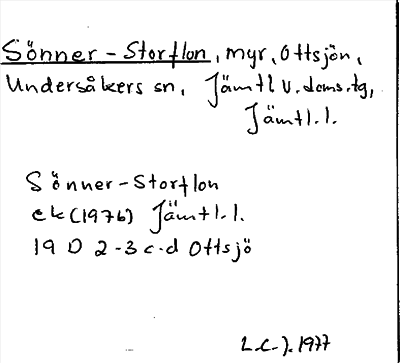 Sönner-Storflon, myr, Ottsjön,
Undersåkers sn, Jämtl v. doms.tg,
Jämtl.l.
Sönner-Storflon
ek (1976) Jämtl.l.
19 D 2-3 c-d Ottsjö
L.C.J. 1977